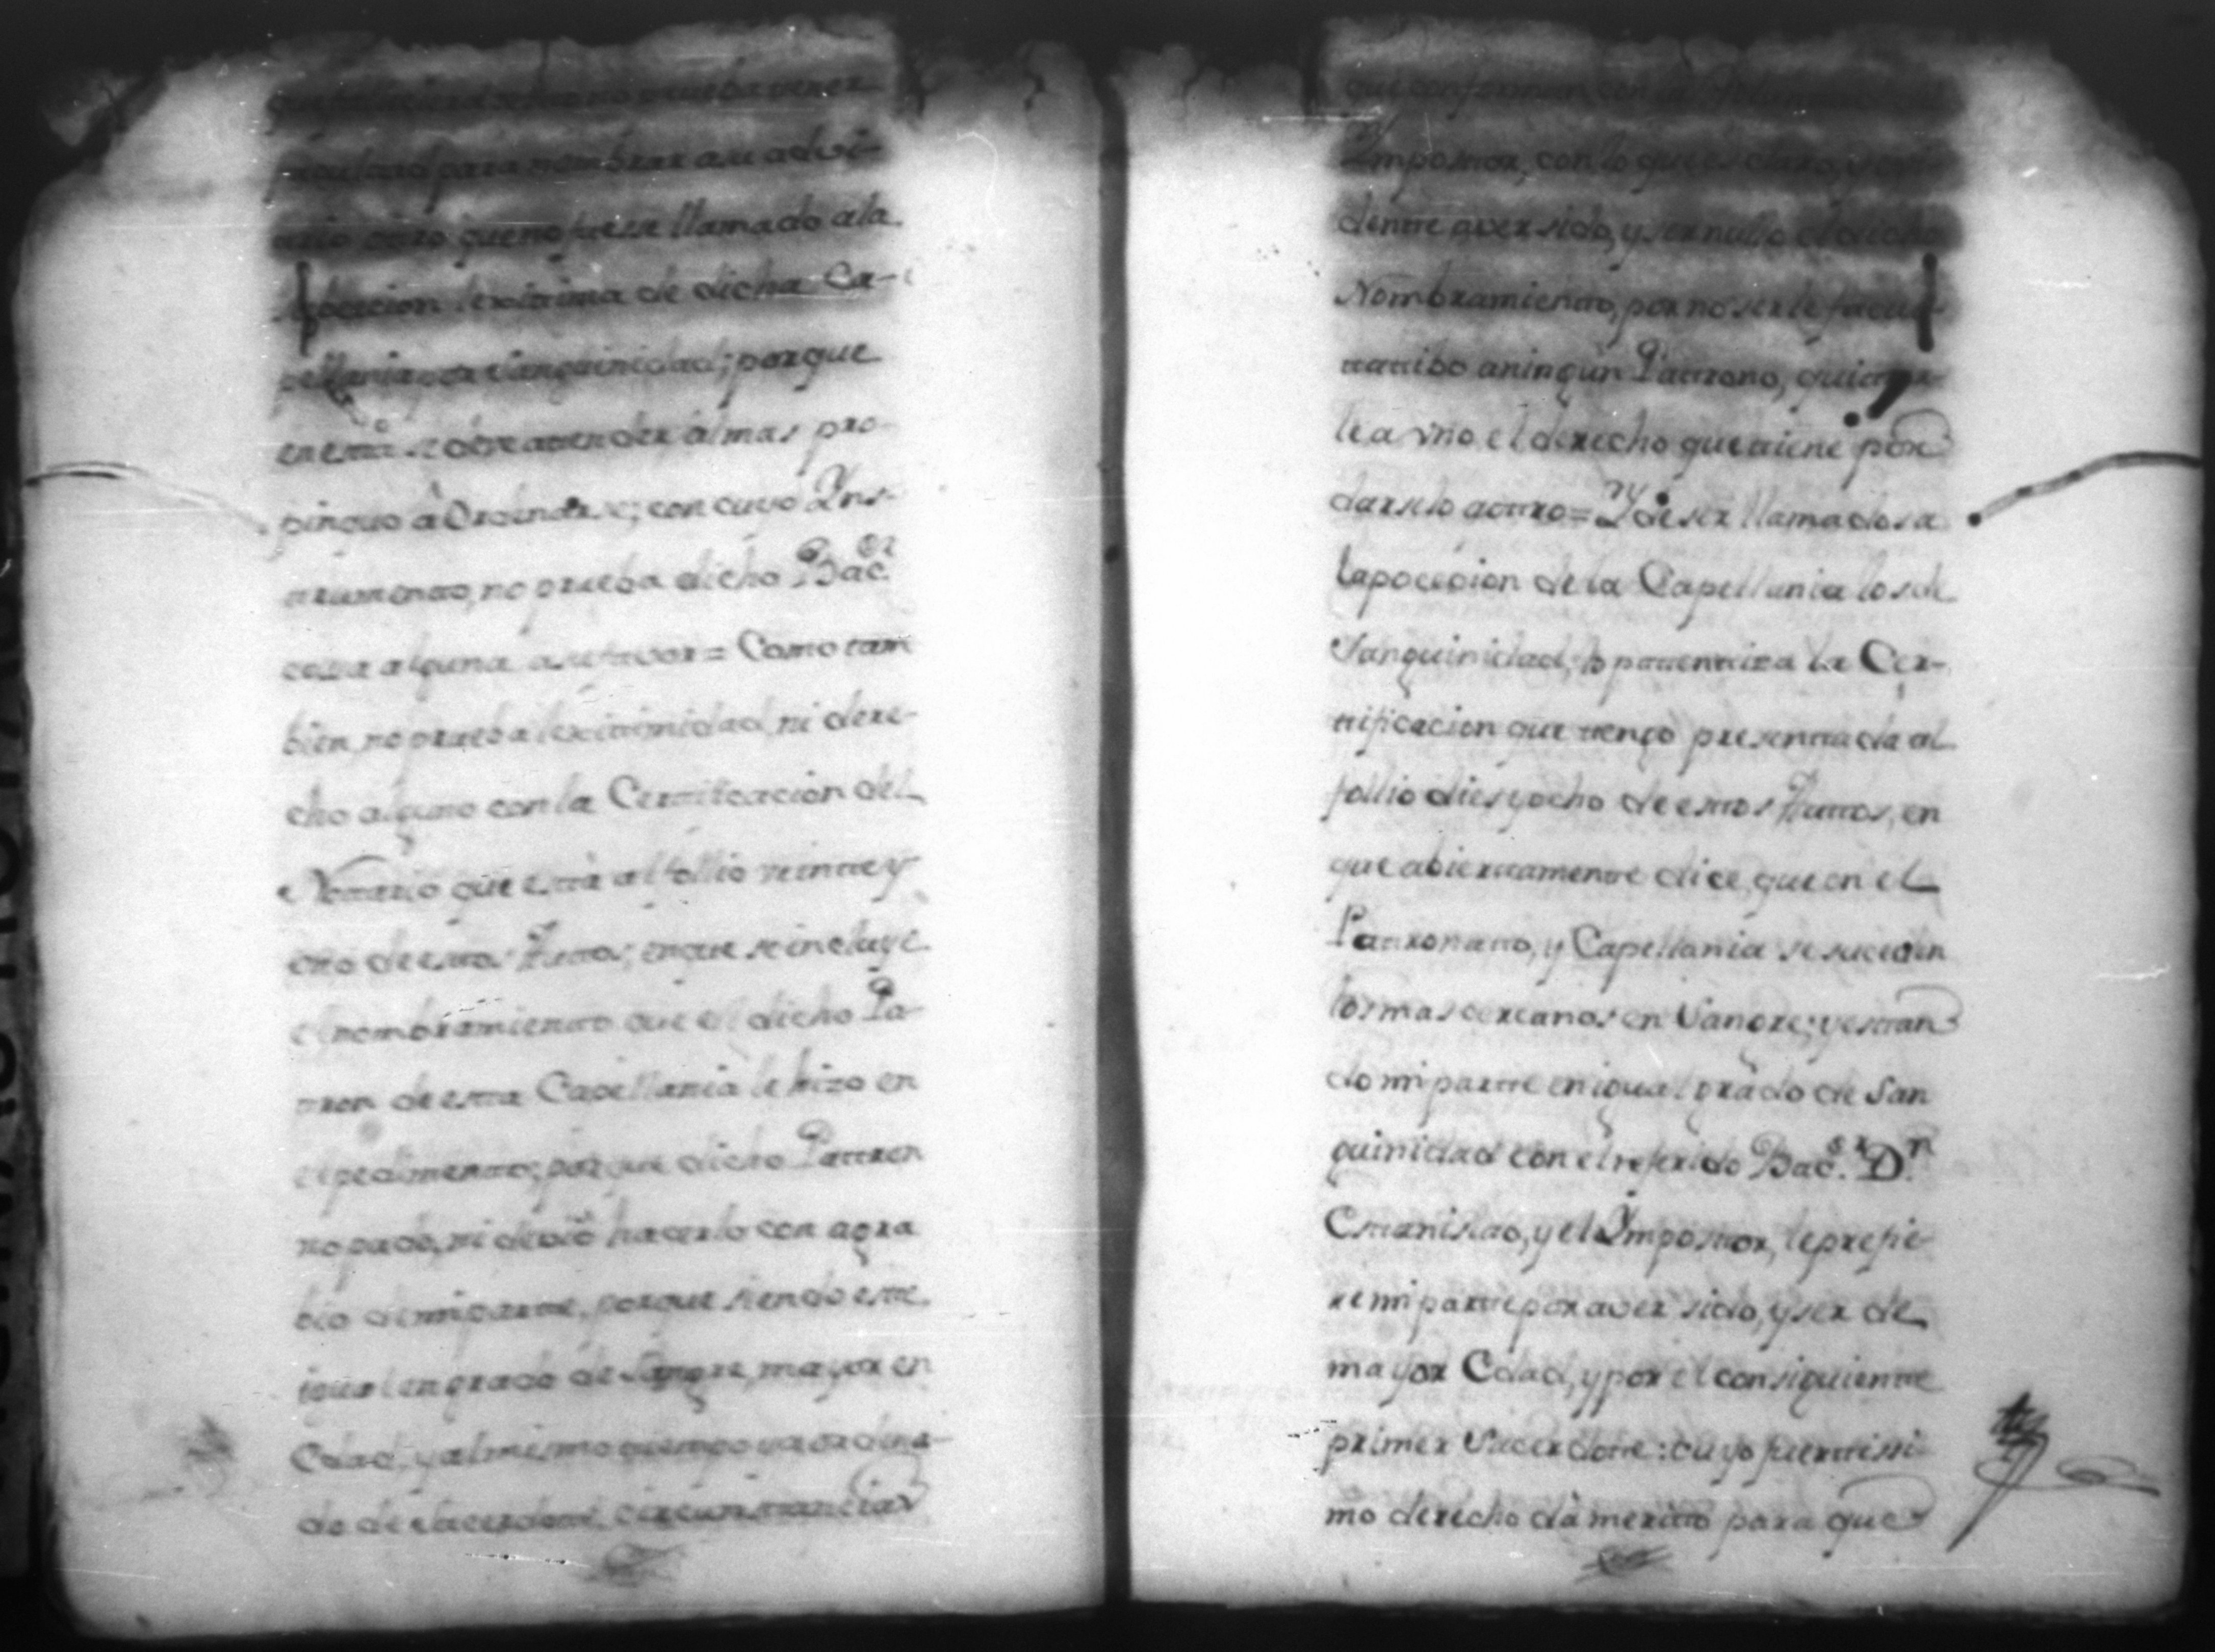 facultad para nombrar a su advi-
trio otro que no fuese llamado a la
posecion lexitima de dicha Ca-
pellania por sanguinidad; porque
en esta se debe atender al mas pro-
pinquo à Ordenarse; con cuyo Yns-
trumento, no prueba dicho Bac.er
cossa alguna a su favor = Como tam
bien, no prueba lexitimidad, ni dere-
cho alguno con la Certificacion del
Notario que està al follio veinte y
ocho de estos Auttos; en que se incluye
el nombramiento que el dicho Pa-
tron de esta Capellania le hizo en
el pedimento; porque dicho Pattron
no pudo, ni debiò hacerlo con agra
bio de mi parte, porque siendo este
igual en grado de Sangre, mayor en
Edad, y al mismo tiempo ya ordena-
do de Sacerdote, circunstancias
que conforman con la Voluntad del
Ympositor, con lo que es claro, y evi-
dente aver sido, y ser nullo el dicho
Nombramiento, por no serle facul-
tatibo a ningun Pattrono, quitar
le a vno el derecho que tiene por
darselo a otro = Y de ser llamados a
la pocecion de la Capellania los de
Sanguinidad, lo patentiza la Cer-
tificacion que tengo presentada al
follio dies y ocho de estos Auttos, en
que abiertamente dice, que en el
Pattronatto, y Capellania se suceden
los mas cercanos en Sangre; y estan
do mi parte en igual grado de San
guinidad con el referido Bac.er D.n
Estanislao, y el Ympositor, le prefie
re mi parte por aver sido, y ser de
mayor Edad, y por el consiguiente
primer Sacerdote: cuyo fuertissi
mo derecho dà meritto para que